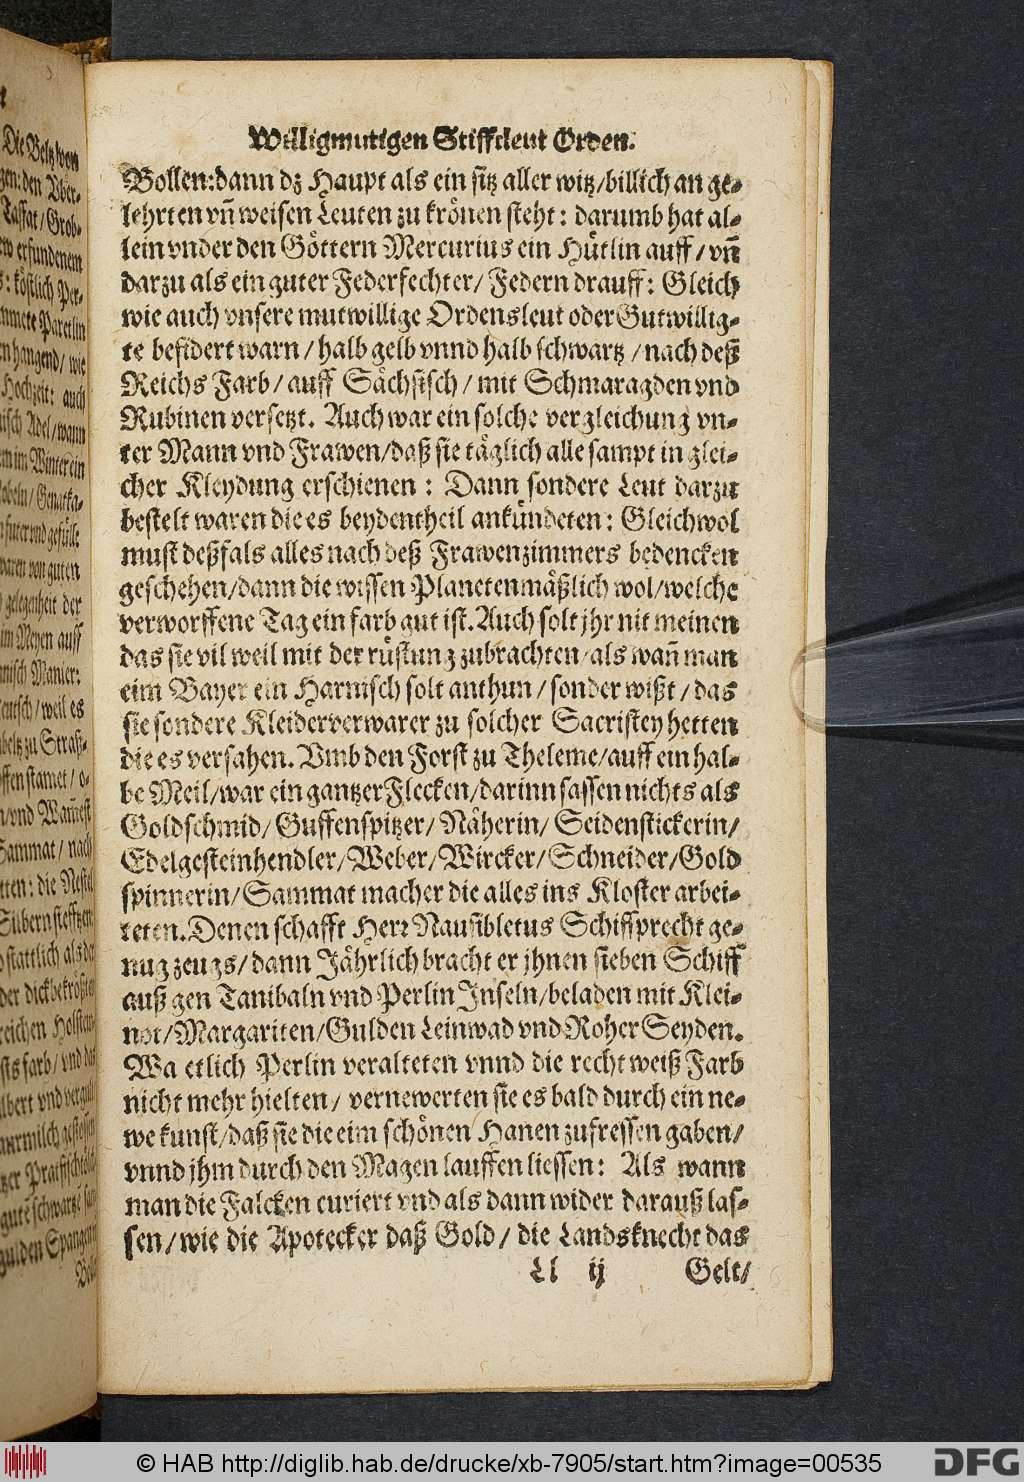 Willigmutigen Stifftleut Orden.
Bollen: dann dz Haupt als ein sitz aller witz/billich an ge-
lehrten vñ weisen Leuten zu krönen steht: darumb hat al-
lein vnder den Göttern Mercurius ein Hütlin auff/ vñ
darzu als ein guter Federfechter/ Federn drauff: Gleich
wie auch vnsere mutwillige Ordensleut oder Gutwillig-
te befidert warn/ halb gelb vnnd halb schwartz/ nach deß
Reichs Farb/ auff Sächsisch/ mit Schmaragden vnd
Rubinen versetzt. Auch war ein solche vergleichung vn-
ter Mann vnd Frawen/daß sie täglich alle sampt in glei-
cher Kleydung erschienen: Dann sondere Leut darzu
bestelt waren die es beydentheil ankündeten: Gleichwol
must deßfals alles nach deß Frawenzimmers bedencken
geschehen/dann die wissen Planetenmäßlich wol/welche
verworffene Tag ein farb gut ist. Auch solt jhr nit meinen
das sie vil weil mit der rüstung zubrachten/als wañ man
eim Bayer ein Harnisch solt anthun/ sonder wißt/ das
sie sondere Kleiderverwarer zu solcher Sacristey hetten
die es versahen. Vmb den Forst zu Theleme/auff ein hal-
be Meil/war ein gantzer Flecken/darinn sassen nichts als
Goldschmid/ Guffenspitzer/ Näherin/ Seidenstickerin/
Edelgesteinhendler/ Weber/ Wircker/ Schneider/ Gold
spinnerin/ Sammat macher die alles ins Kloster arbei-
teten. Denen schafft Herr Nausibletus Schiffprecht ge-
nug zeugs/dann Jährlich bracht er jhnen sieben Schiff
auß gen Tanibaln vnd Perlin Inseln/beladen mit Klei-
not/Margariten/Gulden Leinwad vnd Roher Seyden.
Wa etlich Perlin veralteten vnnd die recht weiß Farb
nicht mehr hielten/ vernewerten sie es bald durch ein ne-
we kunst/daß sie die eim schönen Hanen zufressen gaben/
vnnd jhm durch den Magen lauffen liessen: Als wann
man die Falcken curiert vnd als dann wider darauß las-
sen/ wie die Apotecker daß Gold/ die Landsknecht das
Ll ij Gelt/
© HAB http://diglib.hab.de/drucke/xb-7905/start.htm?image=00535
DFG